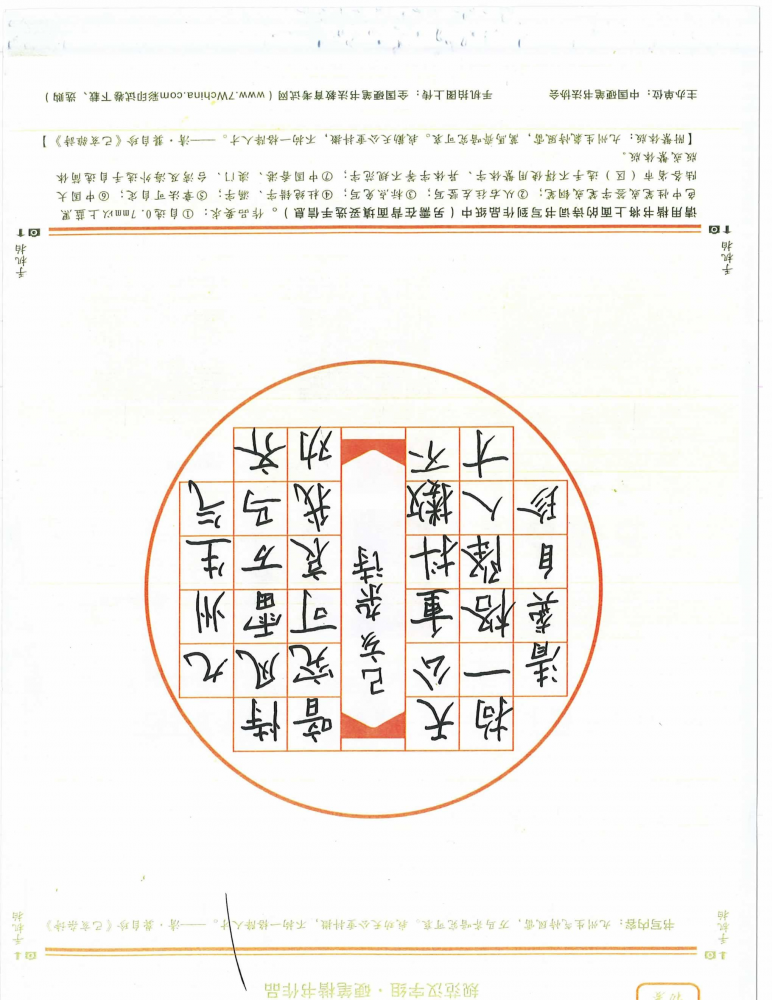 规范汉字组·硬笔楷书作品
手机拍
手机拍
书写内容：九州生气恃风雷，万马齐喑究可哀。我劝天公重抖擞，不拘一格降人才。——清·龚自珍《己亥杂诗》
九州生气
恃风雷万马齐
喑究可哀我劝
己亥杂诗
天公重抖擞不
拘一格降人才
清龚自珍
手机拍
手机拍
请用楷书将上面的诗词书写到作品纸中（另需在背面填妥选手信息）。作品要求：①自选0.7mm以上蓝黑
色中性笔或签字笔或钢笔；②从右往左竖写；③标点免写；④杜绝错字、漏字；⑤章法可自定；⑥中国大
陆各省市（区）选手不得使用繁体字、异体字等不规范字；⑦中国香港、澳门、台湾及海外选手自选简体
版或繁体版。
【附繁体版：九州生氣恃風雷，萬馬齊喑究可哀。我勸天公重抖擻，不拘一格降人才。——清·龔自珍《己亥雜詩》】
主办单位：中国硬笔书法协会 手机拍图上传：全国硬笔书法教育考试网（www.7Wchina.com彩印试卷下载、选购）